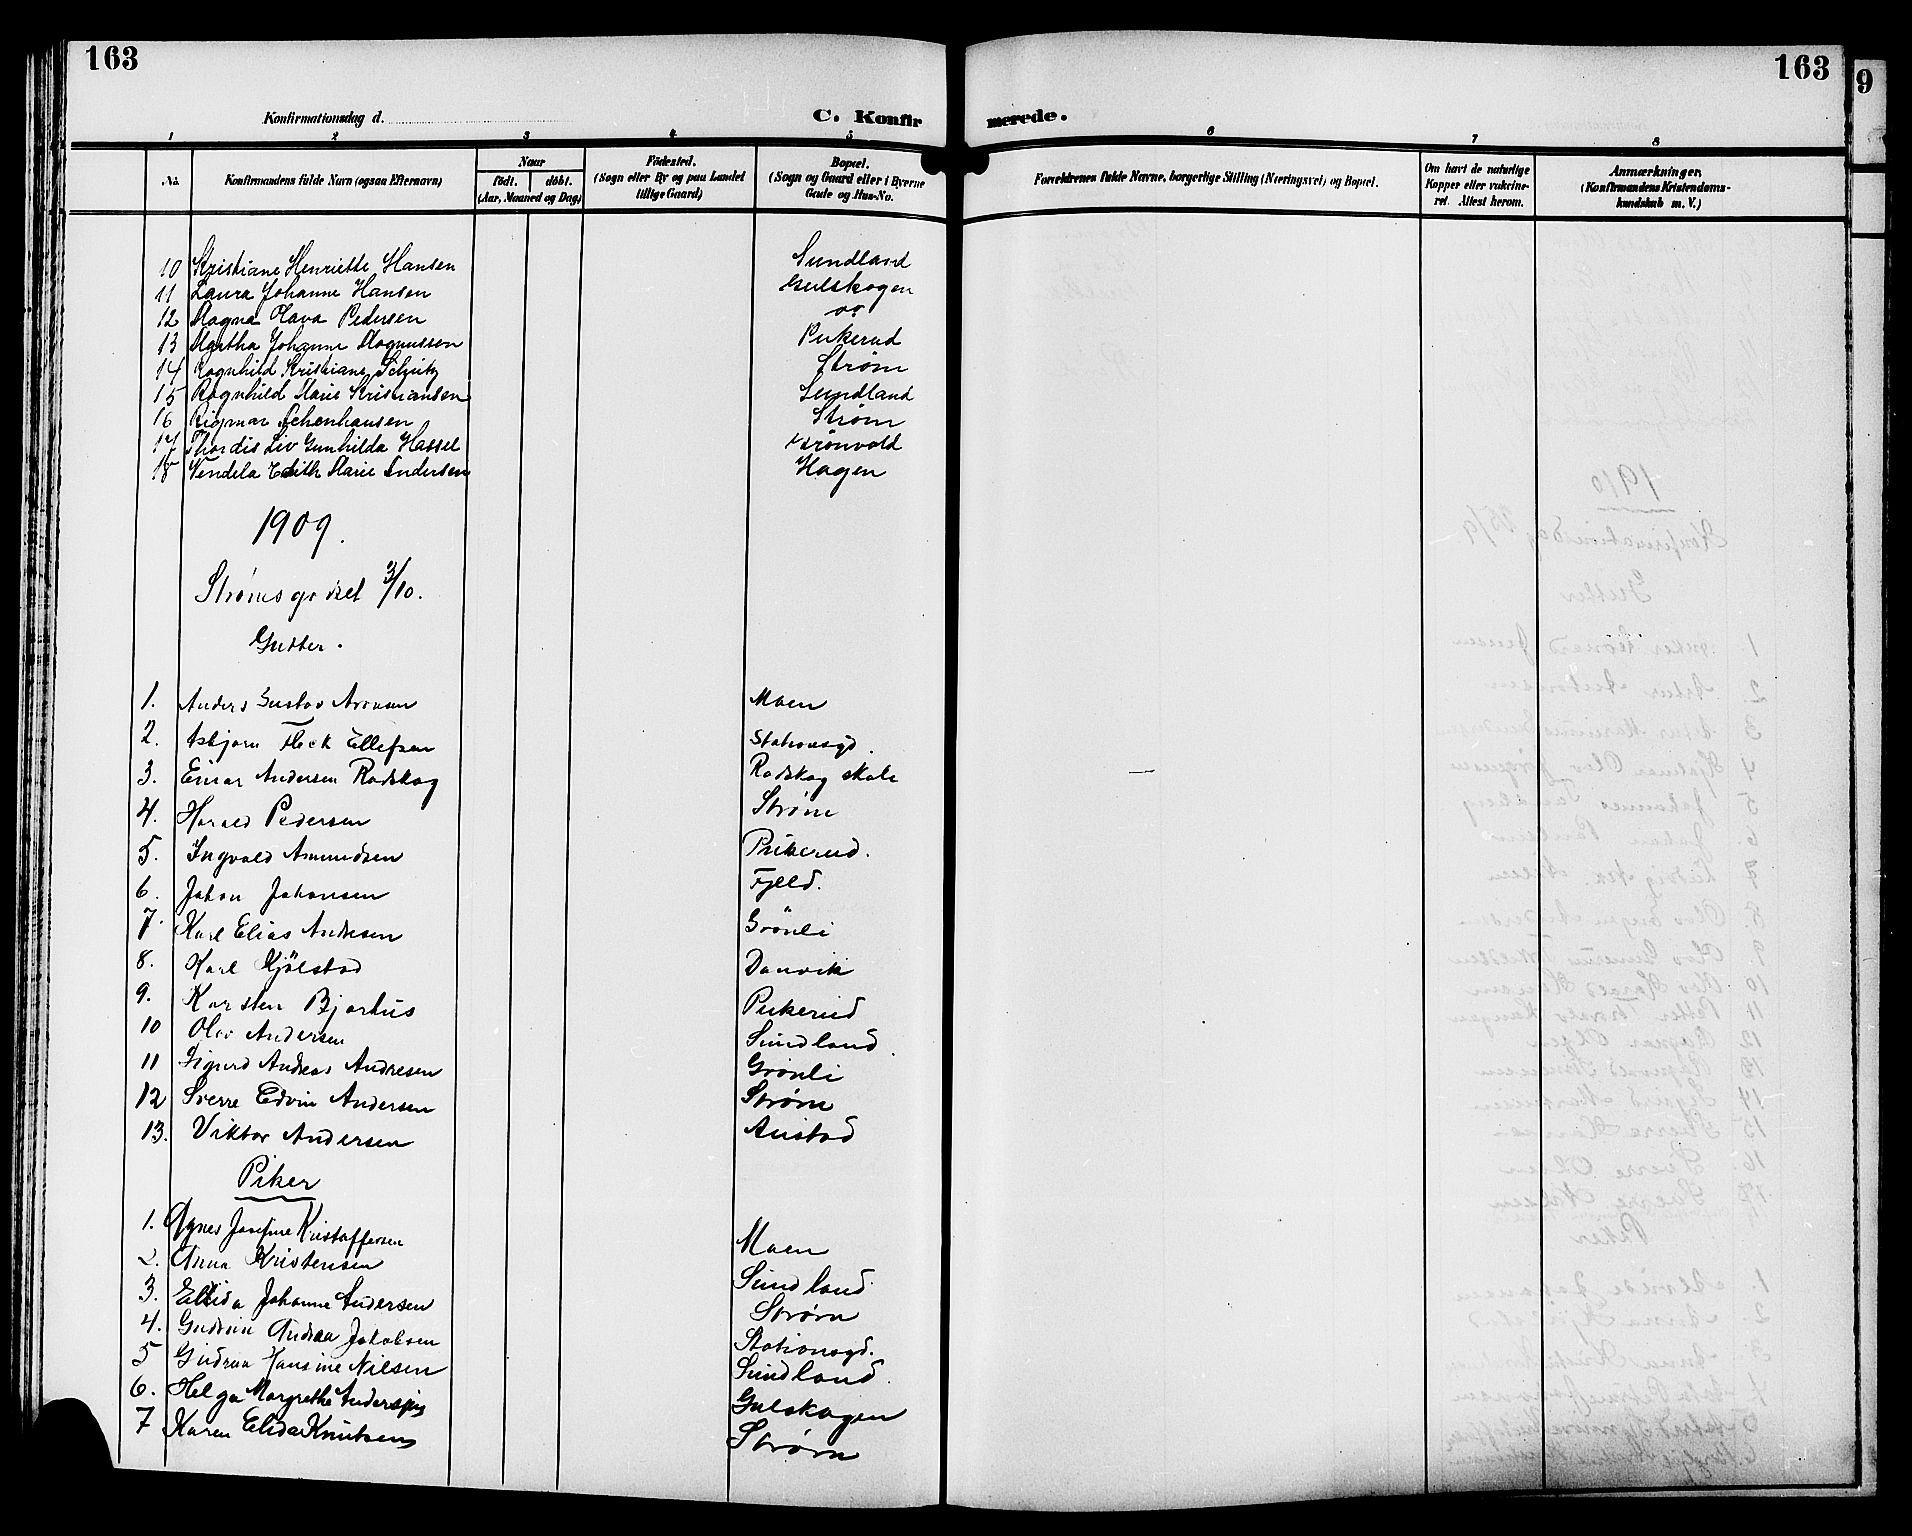 163
163
9
Konfirmationsdag d.
C. Konfirmerede.
1 2 3 4 5 6 7 8
No. Konfirmandens fulde Navn (ogsaa Efternavn) Naar födt. döbt. (Aar, Maaned og Dag) Födested. (Sogn eller By og paa Landet tillige Gaard) Bopæl. (Sogn og Gaard eller i Byerne Gade og Hus-No. Forældrenes fulde Navne, borgerlige Stilling (Næringsvei) og Bopæl. Om havt de naturlige Kopper eller vakcineret. Attest herom. Anmærkninger. (Konfirmandens Kristendomskundskab m. V.)
10 Kristiane Henriette Hansen Sundland
11 Laura Johanne Hansen Gulskogen
12 Magna Olava Pedersen
13 Martha Johanne Magnussen Pukerud
14 Ragnhild Kristiane Strøm
15 Ragnhild Marie Kristiansen Sundland
16 Rigmar Schenhausen Strøm
17 Thordis Liv Gunhilda Hassel Grönvold
18 Vendela Edith Marie Andersen Hagen
1909.
Strømsgodset 3/10.
Gutter.
1. Anders Gustav Aronsen Moen
2. Asbjørn Fleck Ellefsen Stationsgd.
3. Einar Andersen Rødskog Rødskog skole
4. Harald Pedersen Strøm
5. Ingvald Amundsen Pukerud.
6. Johan Johansen Fjeld.
7. Karl Elias Andresen Grönli
8. Karl Kjölstad Danvik
9. Karsten Bjørhus Pukerud
10 Olav Andersen Sundland.
11 Sigurd Andreas Andresen Grönli
12 Sverre Edvin Andersen Strøm
13. Viktor Andersen Austad
Piker
1. Agnes Josefine Kristoffersen Moen
2. Anna Kristensen Sundland
3. Ellida Johanne Andersen Strøm
4. Gudrun Andrea Jakobsen Stationsgd.
5 Gudrun Hansine Nilsen Sundland.
6. Helga Margrethe Andersen Gulskogen
7 Karen Elida Knutsen Strøm